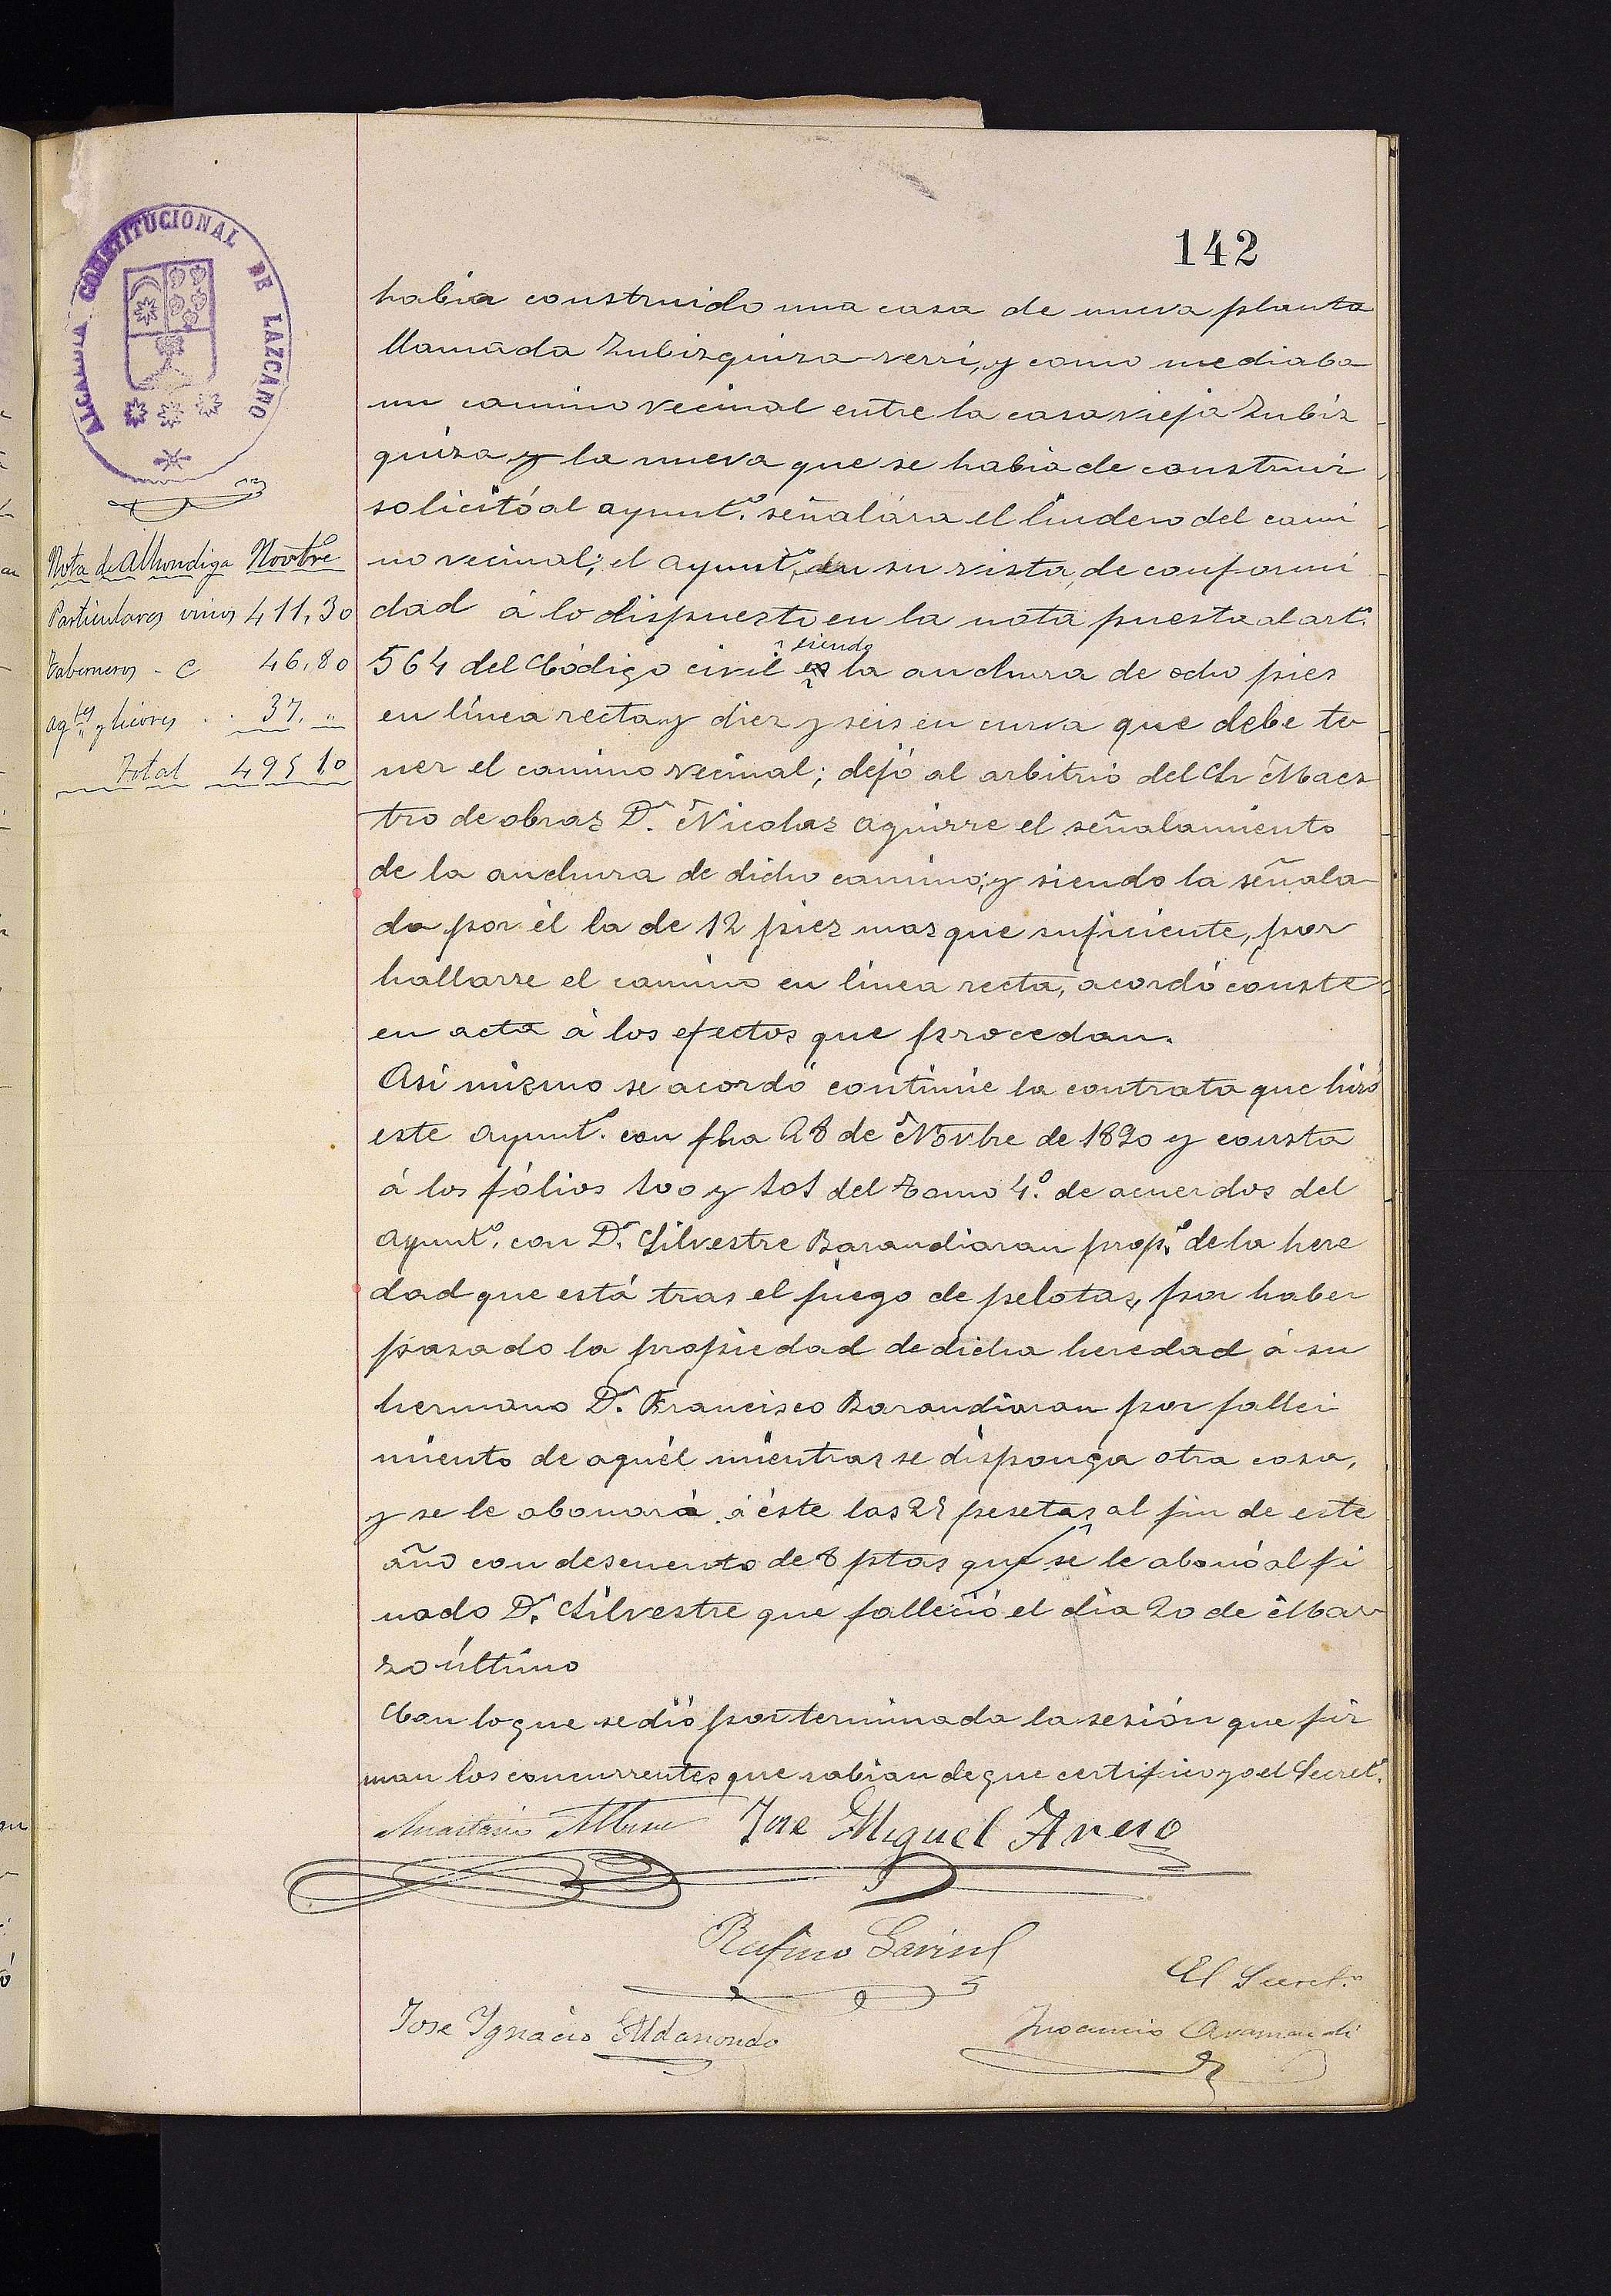 142
ALCALDIA CONSTITUCIONAL DE LAZCANO
Nota de Alhondiga Novbre
Particulares vinos 411,30
Taberneros - C 46,80
Agtes y licores . . 37. "
Total 495 10
habia construido una casa de nueva planta
llamada Zubizquiza-verri, y como mediaba
un camino vecinal entre la casa vieja Zubiz
quiza y la nueva que se habia de construir
solicitó al ayuntº. señalára el lindero del cami
no vecinal; el ayuntº, en su vista, de conformi
dad á lo dispuesto en la nota puesta al artº.
siendo
564 del Código civil es la anchura de ocho pies
en línea recta y diez y seis en curva que debe te
ner el camino vecinal; dejó al arbitrio del Sr Maes
tro de obras Dn. Nicolas Aguirre el señalamiento
de la anchura de dicho camino; y siendo la señala
da por él la de 12 pies mas que suficiente, por
hallarse el camino en línea recta, acordó conste
en acta á los efectos que procedan.
Asi mizmo se acordó continúe la contrata que hizo
este ayuntº. con fha 28 de Novbre de 1890 y consta
á los fólios 100 y 101 del Tomo 4º. de acuerdos del
ayuntº. con Dn. Silvestre Barandiaran propº. de la here
dad que está tras el juego de pelotas, por haber
pasado la propiedad de dicha heredad á su
hermano Dn. Francisco Barandiaran por falleci
miento de aquél mientras se disponga otra cosa,
y se le abonará á éste las 25 pesetas al fin de este
año con descuento de 8 ptas que se le abonó al fi
nado Dn. Silvestre que falleció el dia 20 de Mar
zo último
Con lo que se dió por terminada la sesión que fir
man los concurrentes que sabian de que certifico yo el Secretº.
Jose Miguel
Rufino
El Secretº
Jose Ygnacio Aldasoro
Inocencio